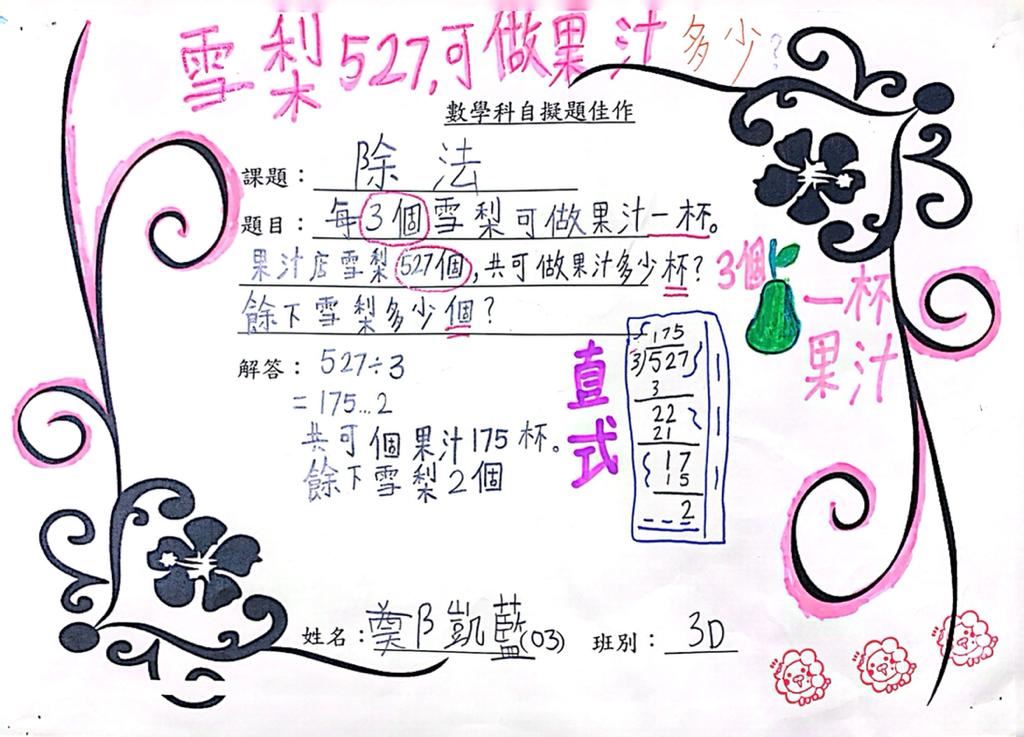 雪梨527,可做果汁多少?
數學科自擬題佳作
課題：除法
題目：每3個雪梨可做果汁一杯。
果汁店雪梨527個,共可做果汁多少杯?
餘下雪梨多少個?
3個
一杯
果汁
解答：527÷3
=175...2
共可個果汁175杯。
餘下雪梨2個
直式
175
3/527
3
22
21
17
15
2
姓名：凱藍(03) 班別：3D